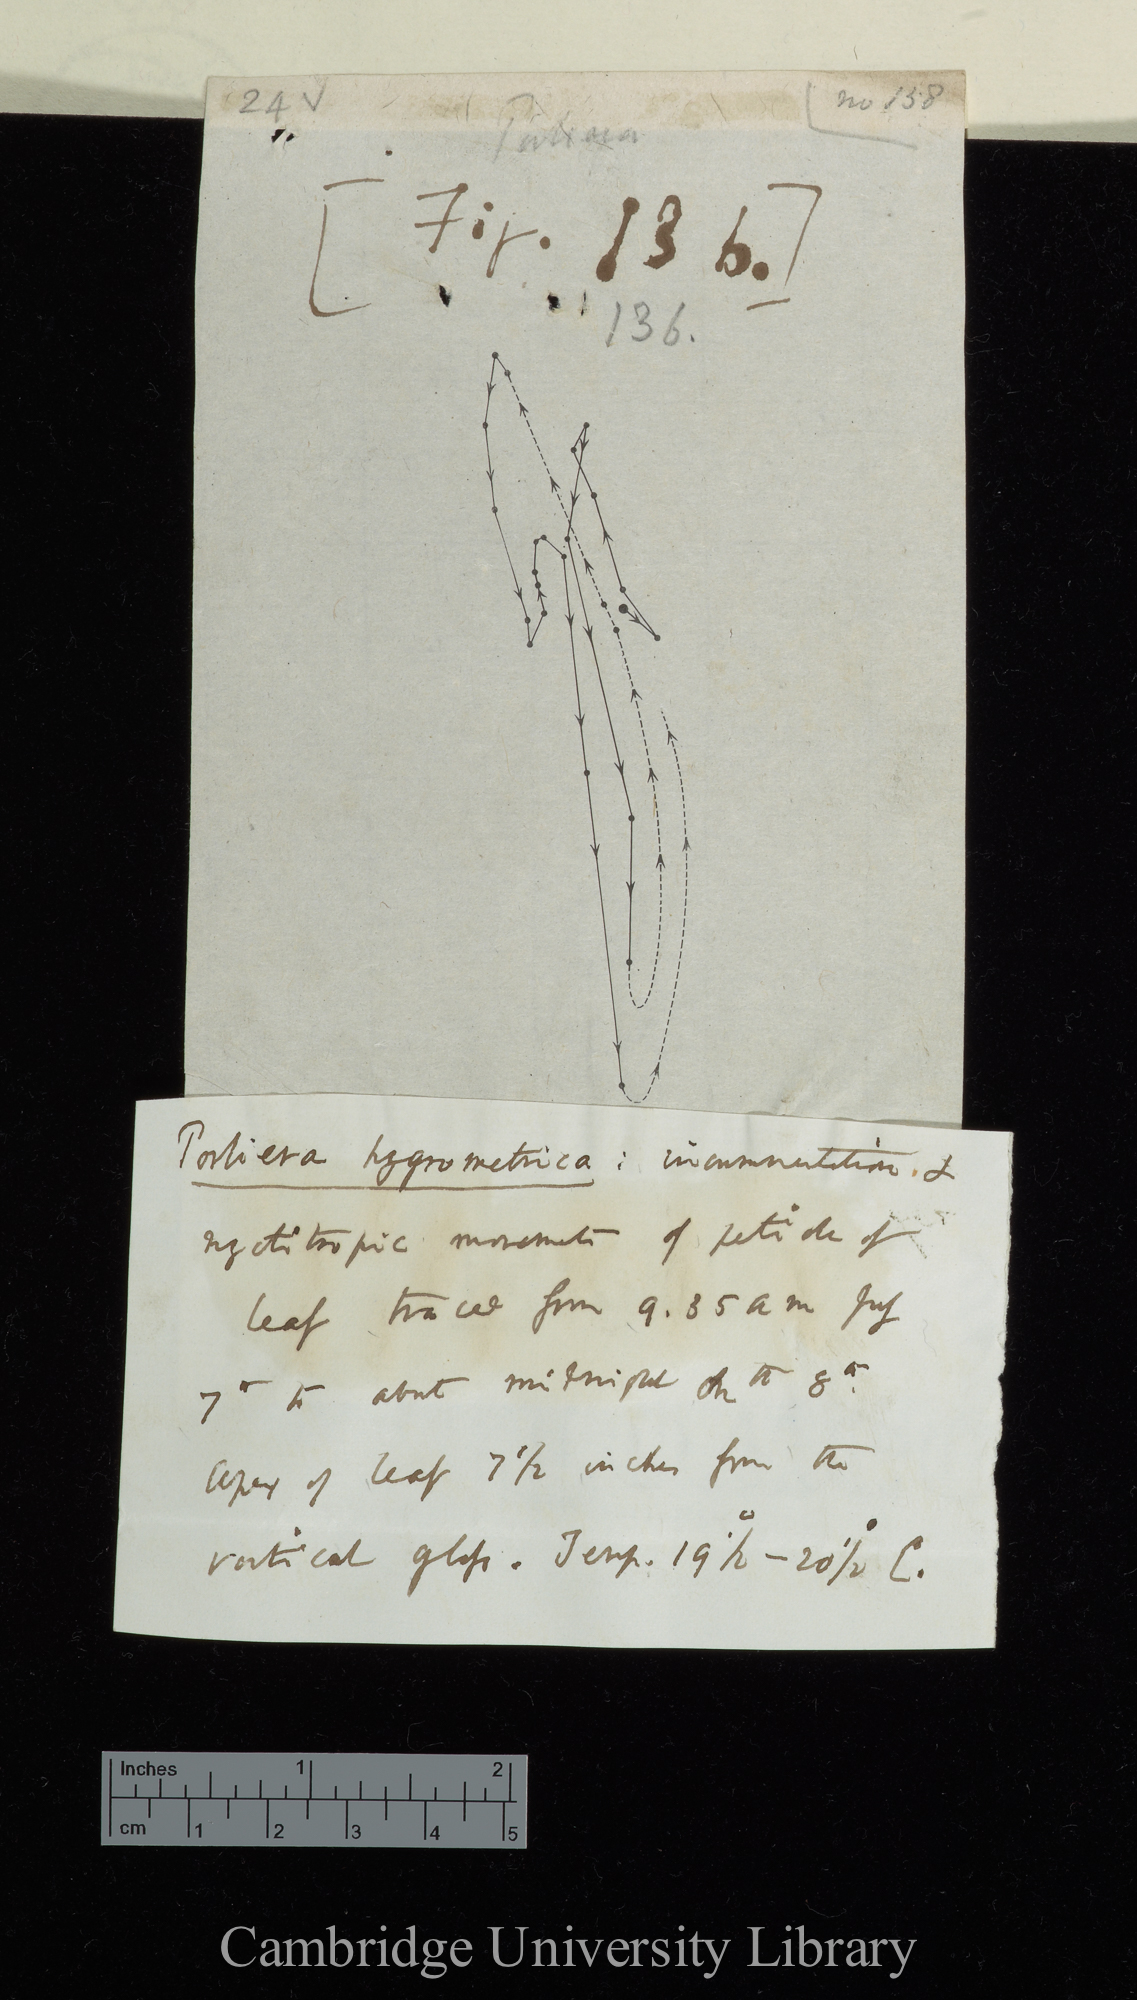 24 V
no 138
Porliera
[Fig. 136.]
136.
Porliera hygrometrica : circumnutation &
nyctitropic movements of petiole of
leaf traced from 9.35 a m July
7th to about midnight on the 8th.
Apex of leaf 7 1/2 inches from the
vertical glass. Temp. 19 1/2° – 20 1/2° C.
Inches 1 2
cm 1 2 3 4 5
Cambridge University Library